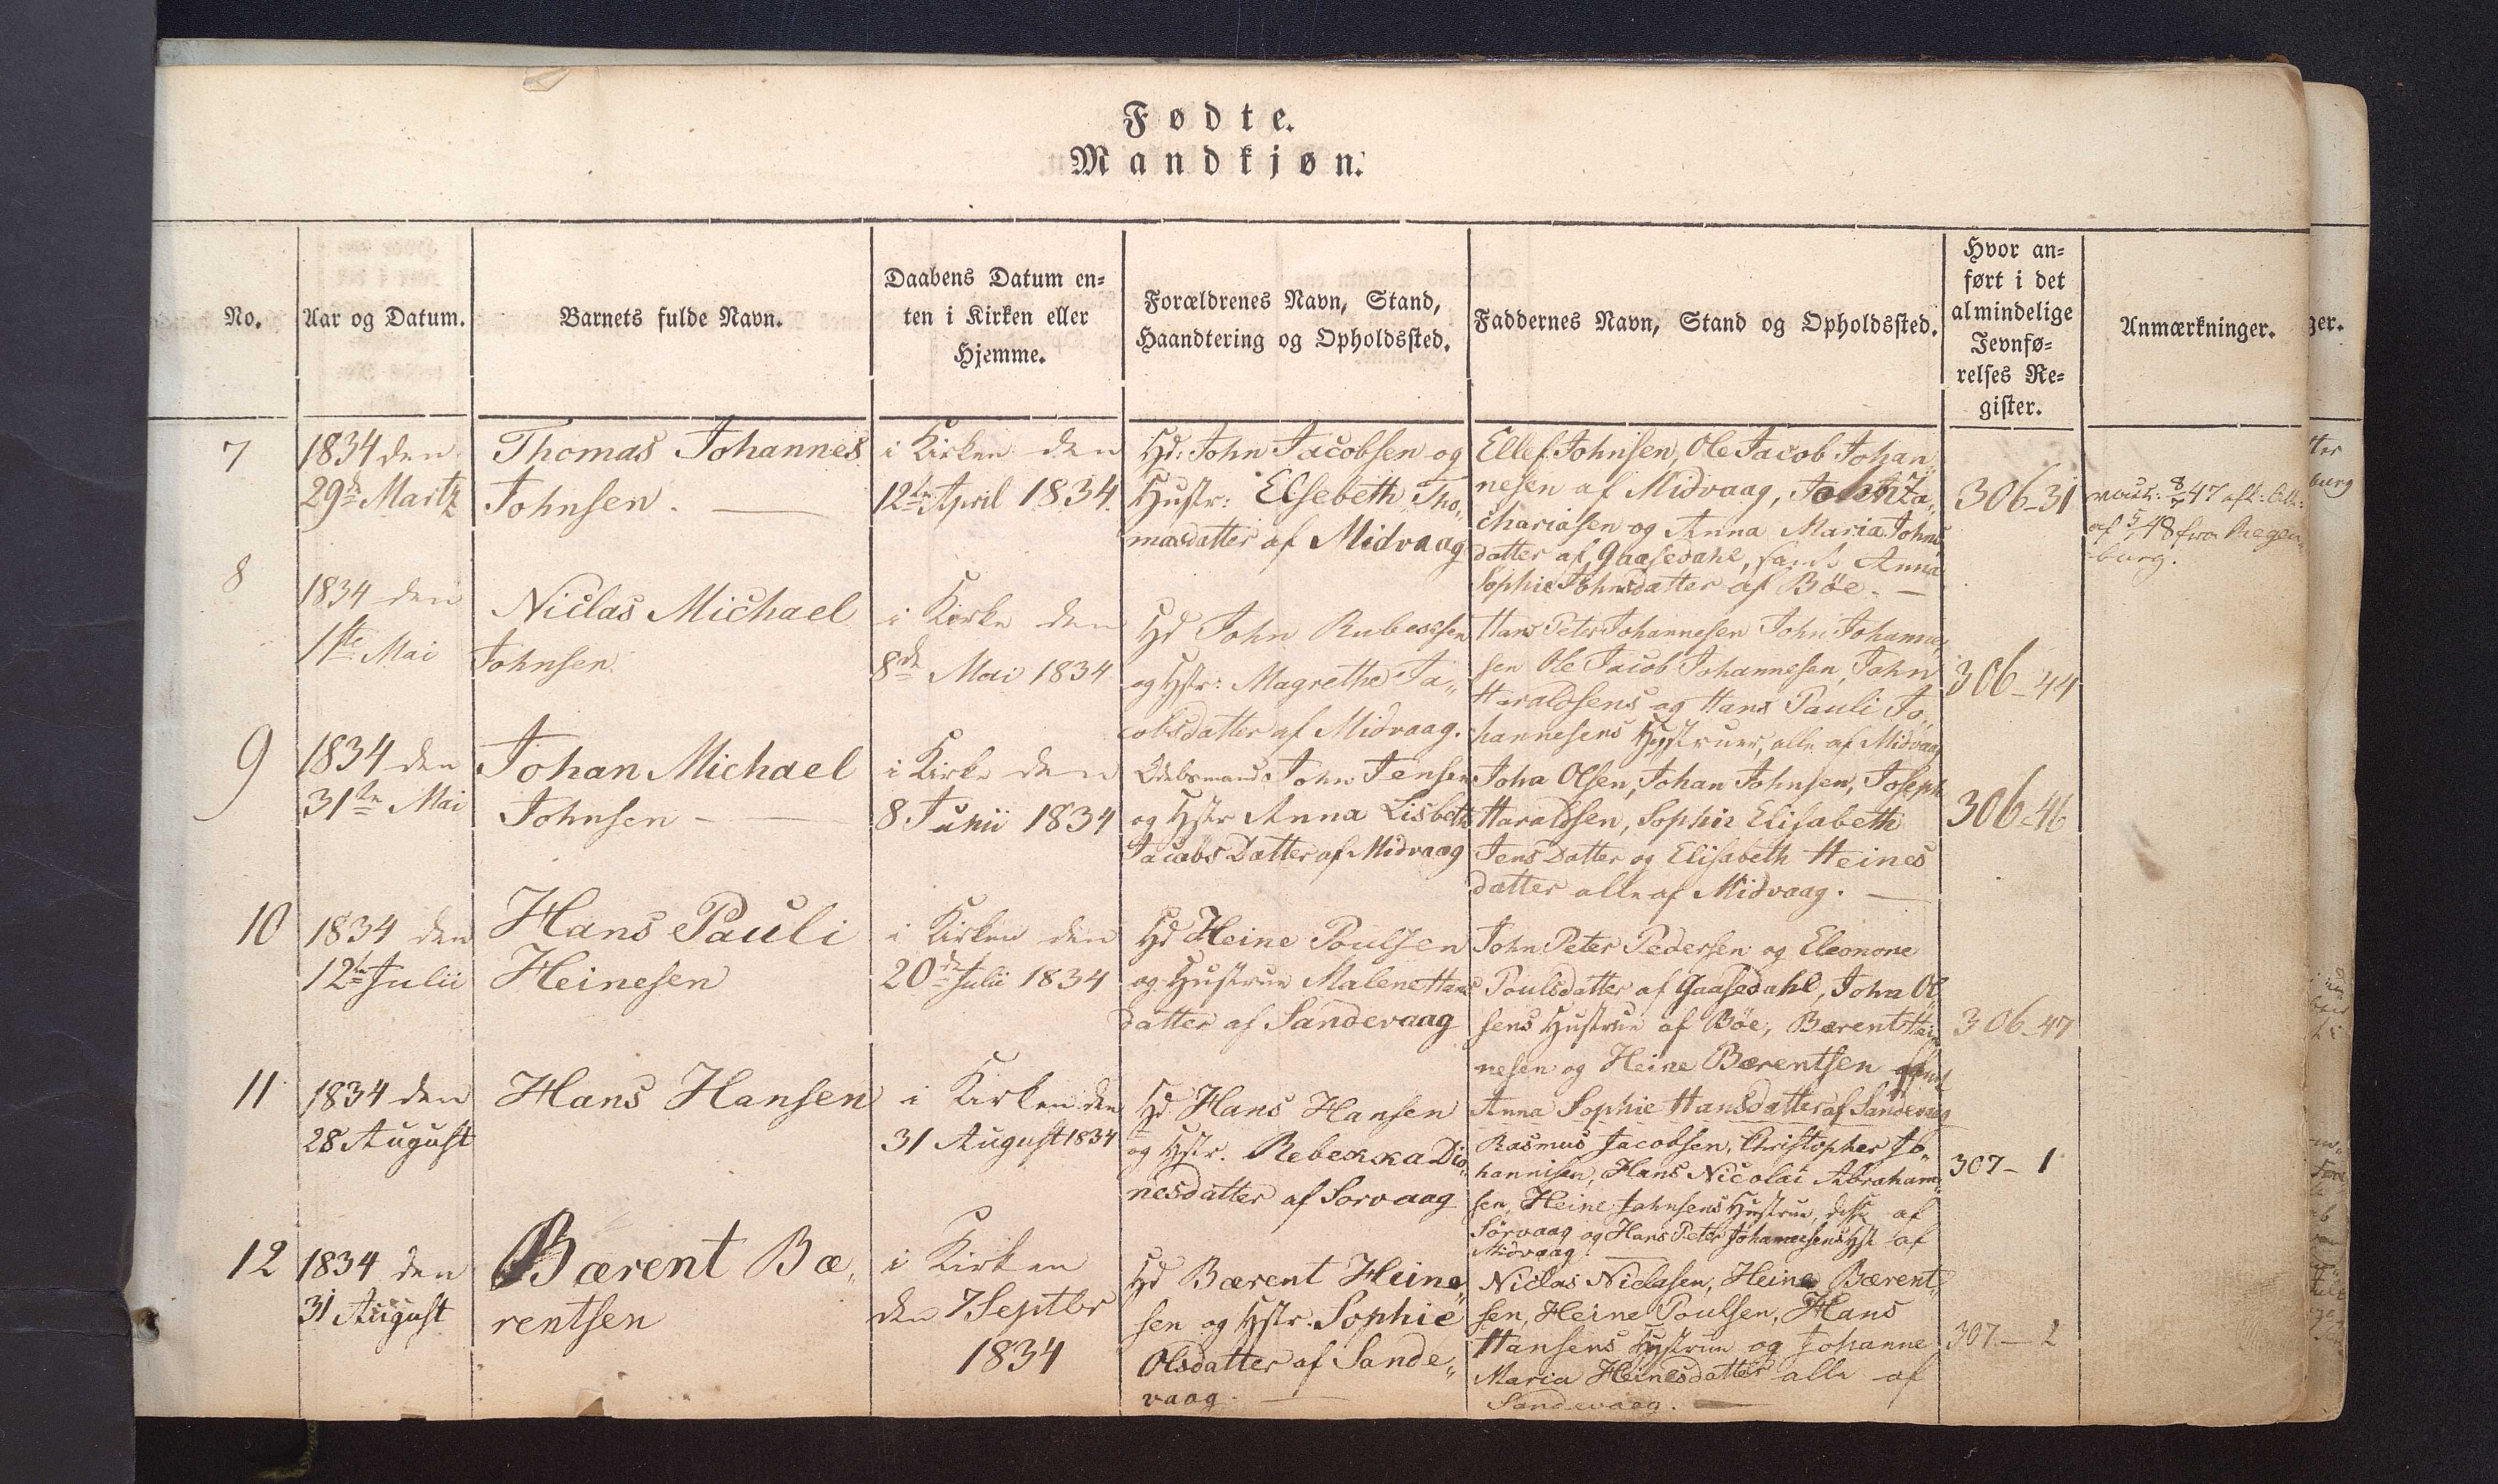 Fødte.
Mandkjøn.
No.
Aar og Datum.
Barnets fulde Navn.
Daabens Datum en=
ten i Kirken eller
Hjemme.
Forældrenes Navn, Stand,
Haandtering og Opholdssted.
Faddernes Navn, Stand og Opholdssted.
Hvor an=
ført i det
almindelige
Jevnfø=
relses Re=
gister.
Anmærkninger.
7
1834 den
29de Martz
Thomas Johannes
Johnsen. —
i Kirken den
12te April 1834.
Hd: John Jacobsen og
Hustr: Elsebeth Tho„
masdatter af Midvaag
Ellef Johnsen, Ole Jacob Johan„
nesen af Midvaag, John Za„
chariasen og Anna Maria Johns
datter af Gaasedahl, samt Anna
Sophie Johnsdatter af Böe. —
306-31
8/ 47
af 5/ 48 fra
burg.
8
1834 den
1ste Mai
Niclas Michael
Johnsen
i Kirke den
8de Mai 1834
Hd John Rubeksen
og Hstr: Magrethe Ja„
cobsdatter af Midvaag.
Hans Peter Johannesen John Johanne„
sen Ole Jacob Johannesen, John
Haraldsens og Hans Pauli Jo„
hannesens Hustruer, alle af Midvaag
306-44
9
1834 den
31te Mai
Johan Michael
Johnsen — —
i Kirke den
8 Junii 1834
Odelsmand John Jensen
og Hstr Anna Lisbeth
Jacobs Datter af Midvaag
John Olsen, Johan Johnsen, Joseph
Haraldsen, Sophie Elisabeth
Jens Datter og Elisabeth Heines
datter alle af Midvaag. —
306-46
10
1834 den
12te Julii
Hans Pauli
Heinesen
i Kirken den
20de Julii 1834
Hd Heine Poulsen
og Hustrue Malene Hans
datter af Sandevaag
John Peter Pedersen og Eleonone
Poulsdatter af Gaasedahl, John Ol„
sens Hustrue af Böe, Bærent Hei„
nesen og Heine Bærentsen samt
Anna Sophie Hansdatter af Sandevaag
306-47
11
1834 den
28 August
Hans Hansen
i Kirken den
31 August 1834
Hd Hans Hansen
og Hstr. Rebekka Dio„
nesdatter af Sorvaag
Rasmus Jacobsen, Christopher Jo„
hannisen, Hans Nicolai Abraham„
sen, Heine Johnsens Hustrue, disse af
Sörvaag og Hans Peter Johannesens Hst af
Midvaag. —
307-1
12
1834 den
31 August
Bærent Bæ„
rentsen
i Kirken
den 7 Septbr
1834
Hd Bærent Heine„
sen og Hstr. Sophie
Olsdatter af Sande„
vaag. —
Niclas Niclasen, Heine Bærent„
sen, Heine Poulsen, Hans
Hansens Hustrue og Johanne
Maria Heinesdatter alle af
Sandevaag. —
307-2
ger.
burg